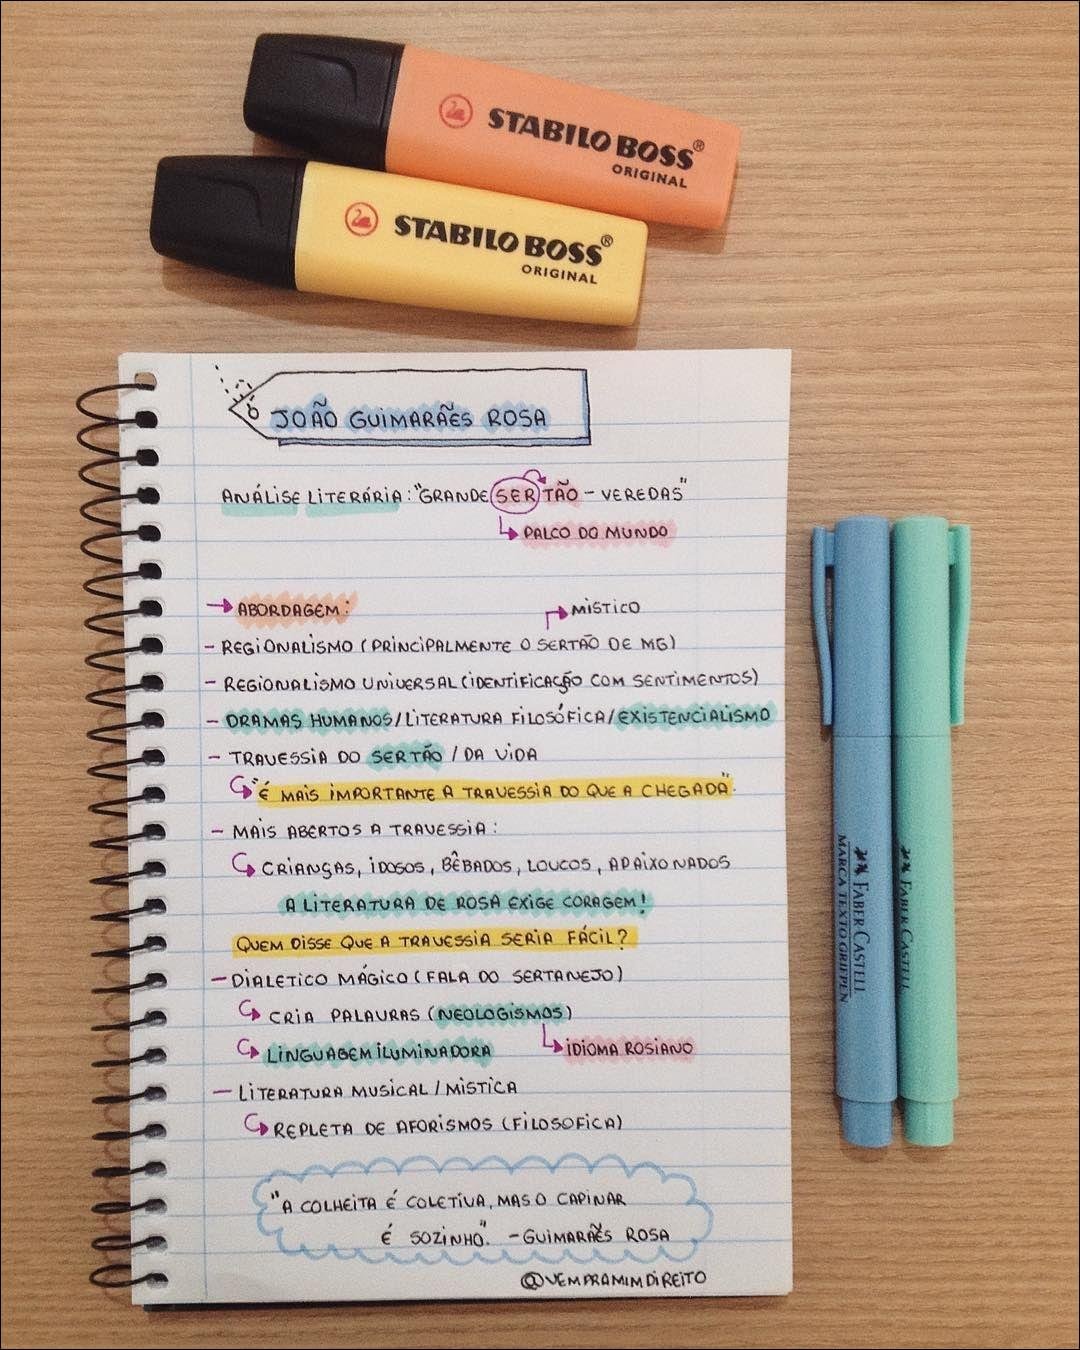 STABILO BOSS®
ORIGINAL
STABILO BOSS®
ORIGINAL
JOÃO GUIMARÃES ROSA
ANÁLISE LITERÁRIA: "GRANDE SERTÃO - VEREDAS"
PALCO DO MUNDO
→ ABORDAGEM:
MISTICO
- REGIONALISMO (PRINCIPALMENTE O SERTÃO DE MG)
- REGIONALISMO UNIVERSAL (IDENTIFICAÇÃO COM SENTIMENTOS)
- DRAMAS HUMANOS/LITERATURA FILOSÓFICA/EXISTENCIALISMO
- TRAVESSIA DO SERTÃO / DA VIDA
"É MAIS IMPORTANTE A TRAVESSIA DO QUE A CHEGADA".
- MAIS ABERTOS A TRAVESSIA:
CRIANÇAS, IDOSOS, BÊBADOS, LOUCOS, APAIXONADOS
A LITERATURA DE ROSA EXIGE CORAGEM!
QUEM DISSE QUE A TRAVESSIA SERIA FÁCIL?
- DIALETICO MÁGICO (FALA DO SERTANEJO)
CRIA PALAVRAS (NEOLOGISMOS)
LINGUAGEM ILUMINADORA
IDIOMA ROSIANO
- LITERATURA MUSICAL / MISTICA
REPLETA DE AFORISMOS (FILOSOFICA)
"A COLHEITA É COLETIVA, MAS O CAPINAR
É SOZINHO". - GUIMARÃES ROSA
@VEMPRAMIMDIREITO
FABER CASTELL
MARCA TEXTO GRIFPEN
FABER CASTELL